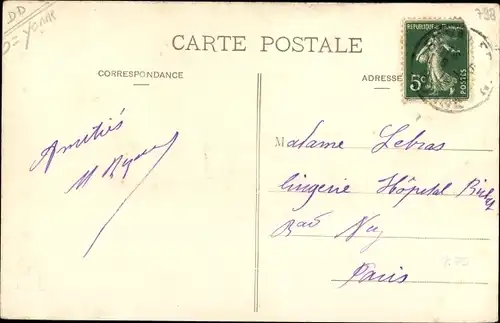 DD
CARTE POSTALE
CORRESPONDANCE
ADRESSE
REPUBLIQUE FRANÇAISE
5c
POSTES
Amitiés
M
Madame Lebras
lingerie Hôpital
Bard Ney
Paris